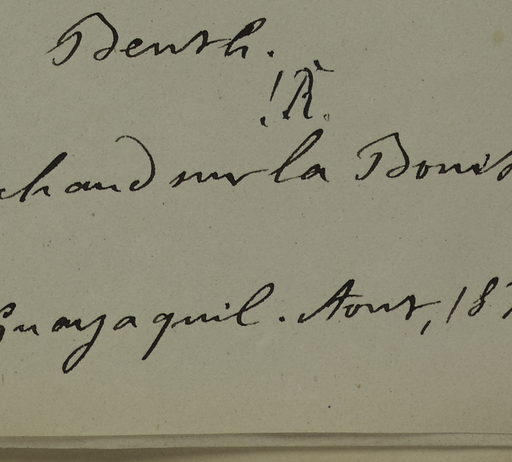 Benth.
!R.
chaud sur la Bonit
Guayaquil. Aout, 183